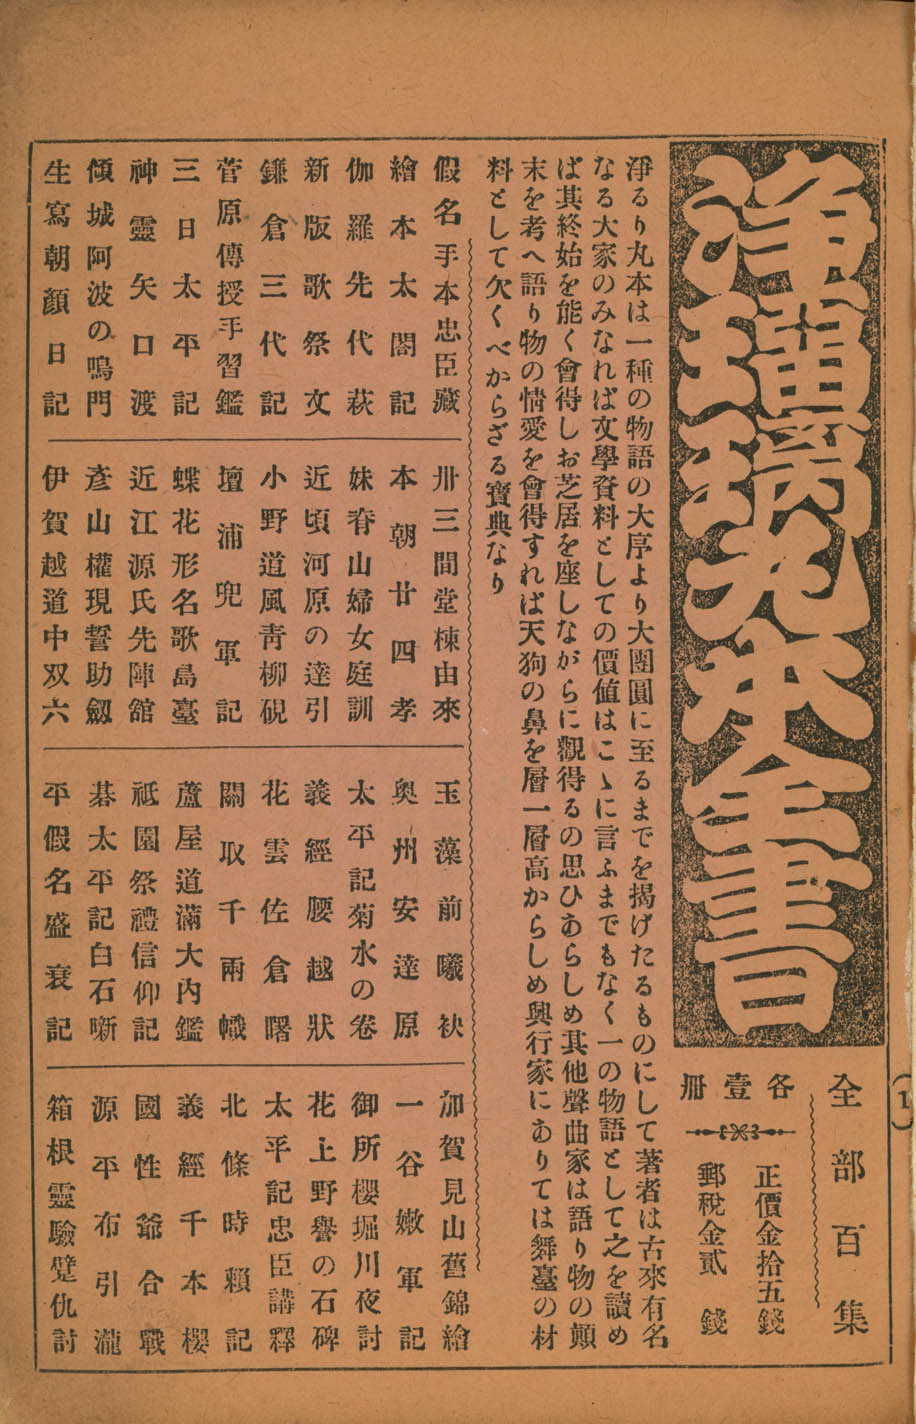 淨瑠璃丸本全書
全部百集
各壹冊
正價金拾五錢
郵稅金貳錢
(1)
淨るり丸本は一種の物語の大序より大團圓に至るまでを揭げたるものにして著者は古來有名
なる大家のみなれば文學資料としての價値はこゝに言ふまでもなく一の物語として之を讀め
ば其終始を能く會得しお芝居を座しながらに觀得るの思ひあらしめ其他聲曲家は語り物の顚
末を考へ語り物の情愛を會得すれば天狗の鼻を層一層高からしめ興行家にありては舞臺の材
料として欠くべからざる寶典なり
假名手本忠臣藏
繪本太閤記
伽羅先代萩
新版歌祭文
鎌倉三代記
菅原傳授手習鑑
三日太平記
神靈矢口渡
傾城阿波の鳴門
生寫朝顏日記
卅三間堂棟由來
本朝廿四孝
妹脊山婦女庭訓
近頃河原の達引
小野道風靑柳硯
壇浦兜軍記
蝶花形名歌島臺
近江源氏先陣舘
彥山權現誓助劔
伊賀越道中双六
玉藻前曦袂
奧州安達原
太平記菊水の卷
義經腰越狀
花雲佐倉曙
關取千兩幟
蘆屋道滿大內鑑
祇園祭禮信仰記
碁太平記白石噺
平假名盛衰記
加賀見山舊錦繪
一谷嫩軍記
御所櫻堀川夜討
花上野譽の石碑
太平記忠臣講釋
北條時賴記
義經千本櫻
國性爺合戰
源平布引瀧
箱根靈驗躄仇討